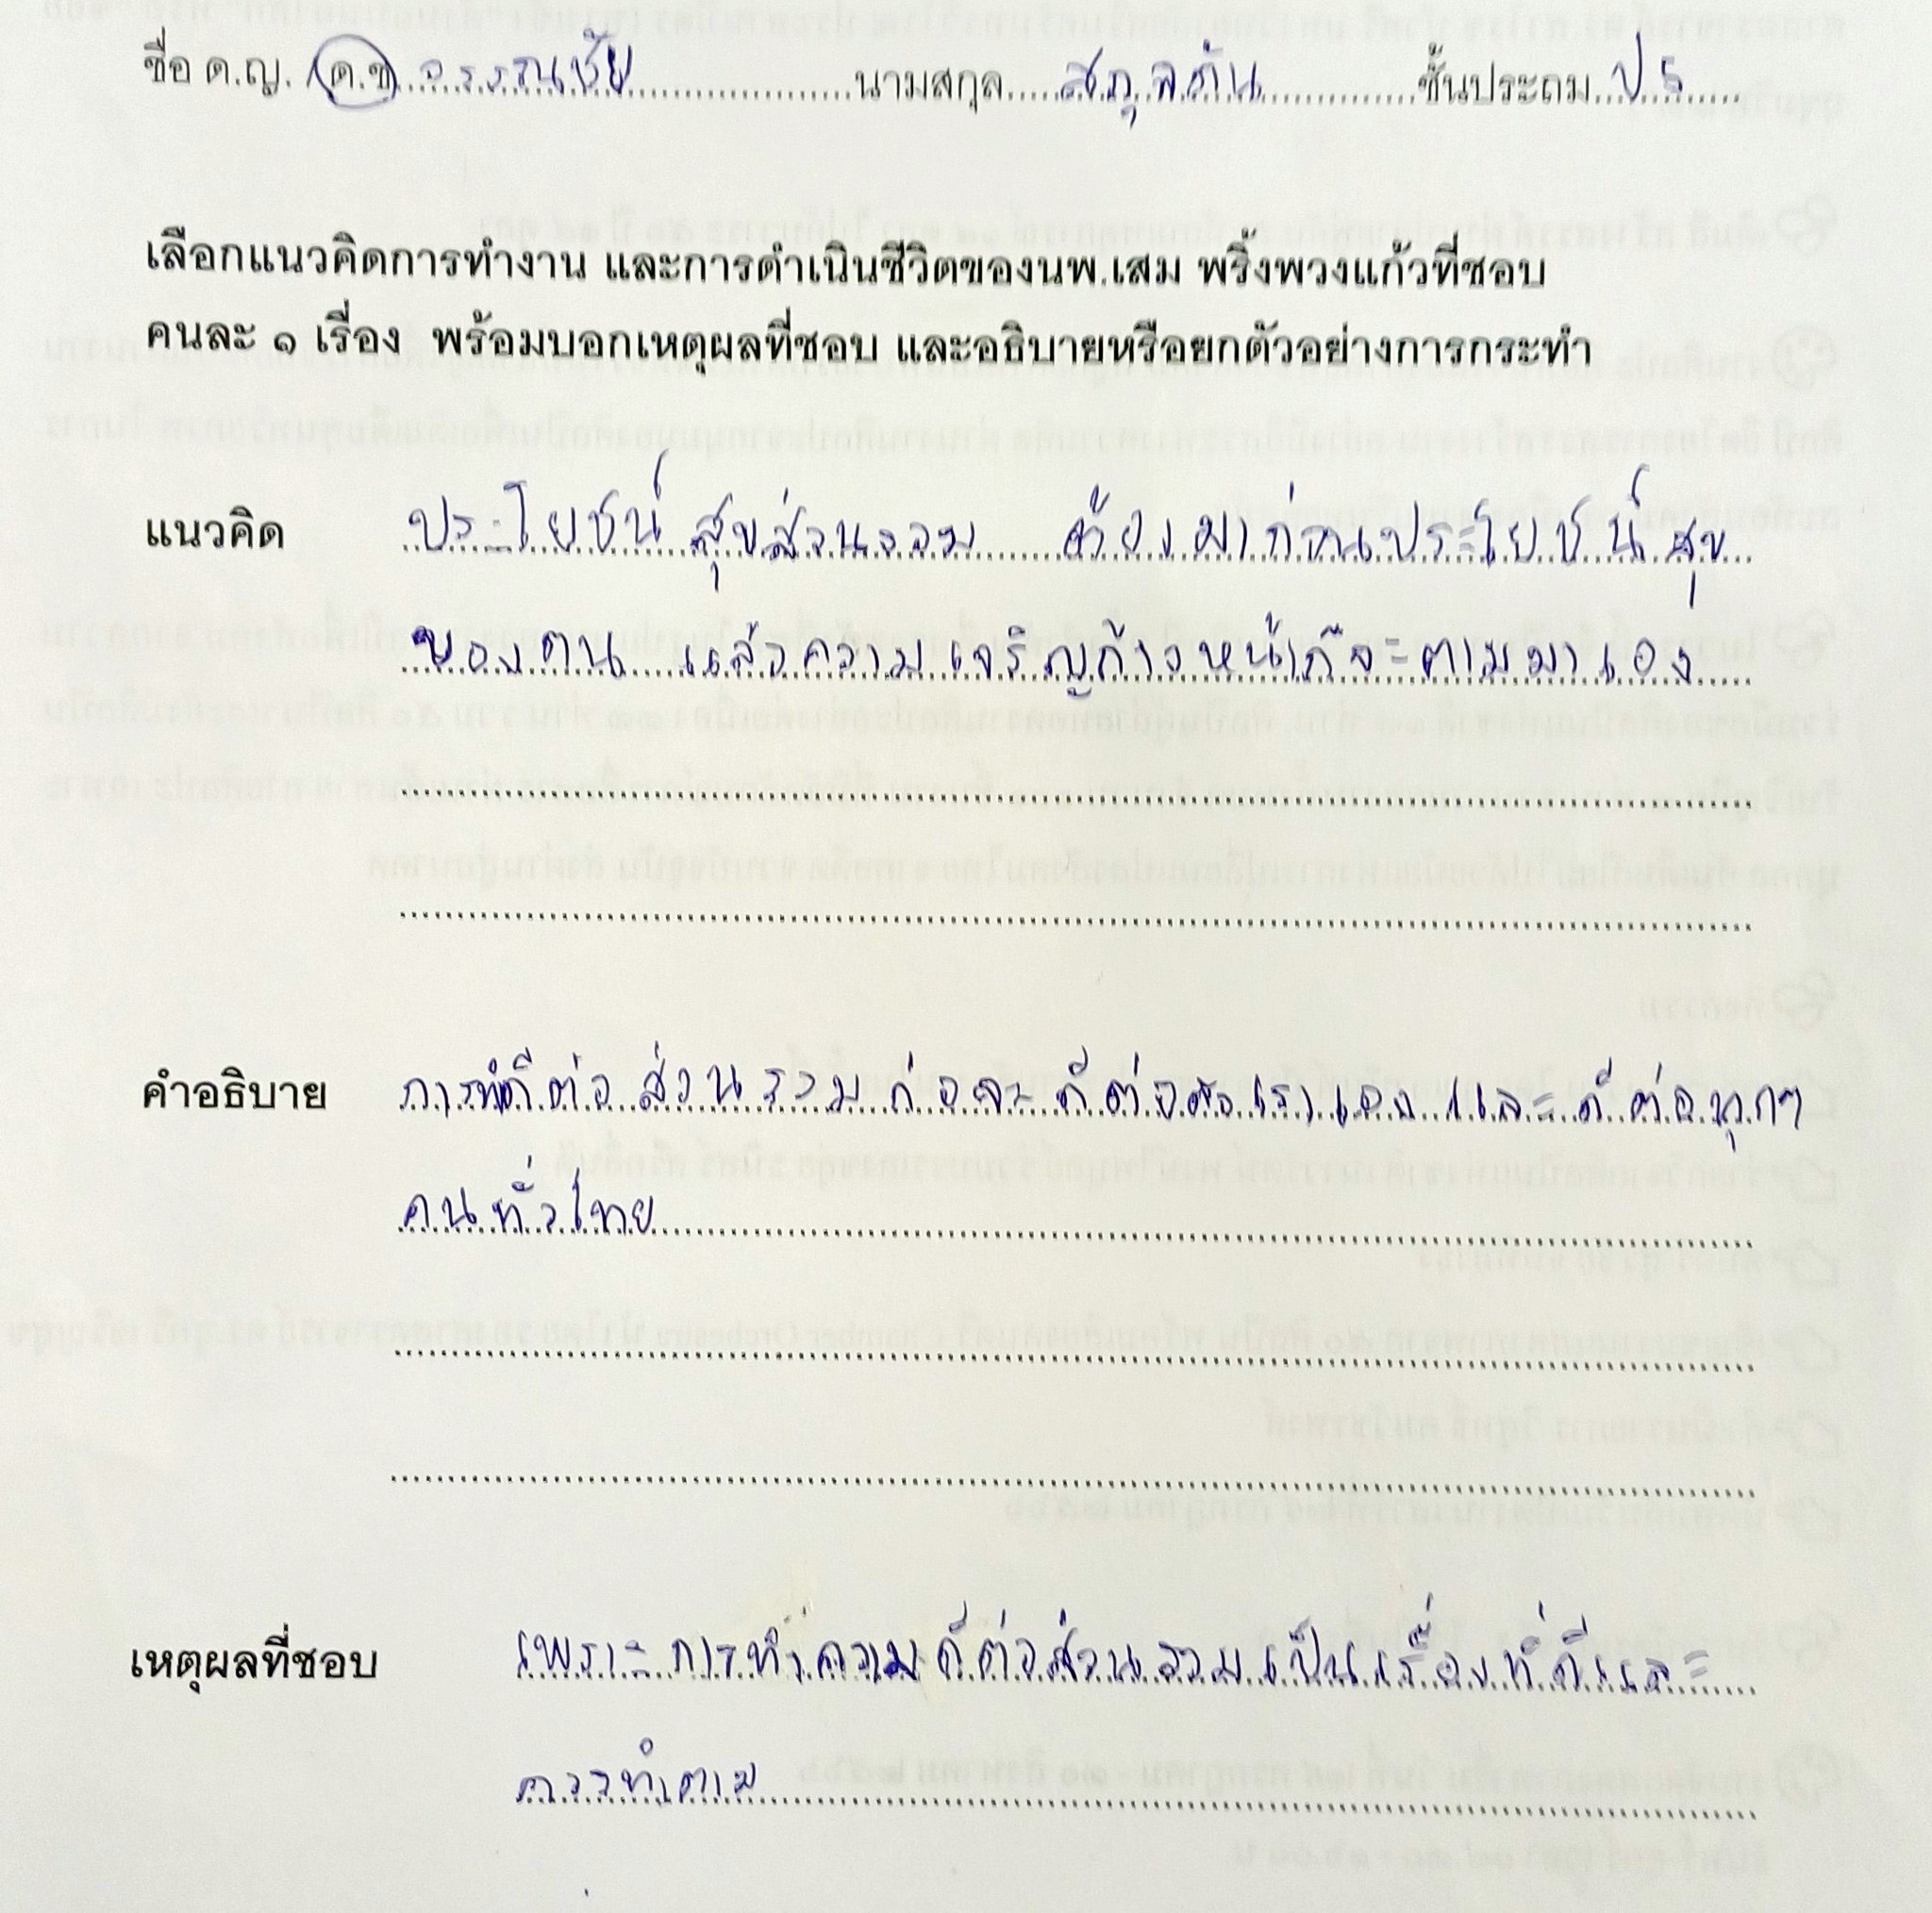 ชื่อ ด.ญ. ด.ช. อรรณชัย นามสกุล สกุลตัน ชั้นประถม ป 5
เลือกแนวคิดการทำงาน และการดำเนินชีวิตของนพ.เสม พริ้งพวงแก้วที่ชอบ
คนละ ๑ เรื่อง พร้อมบอกเหตุผลที่ชอบ และอธิบายหรือยกตัวอย่างการกระทำ
แนวคิด ประโยชน์สุขส่วนรวม ต้องมาก่อนประโยชน์สุข
ของตน แล้วความเจริญก้าวหน้าก็จะตามมาเอง
คำอธิบาย การทำดีต่อส่วนรวมก่อจะดีต่อตัวเราเองและดีต่อทุกๆ
คนทั่วไทย
เหตุผลที่ชอบ เพราะการทำความดีต่อส่วนรวมเป็นเรื่องที่ดีและ
ควรทำตาม